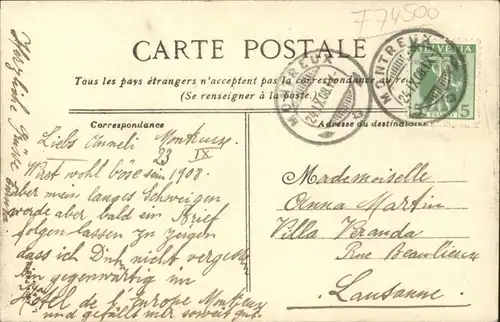 F74500
HELVETIA
5
CARTE POSTALE
MONTREUX
MONTREUX
Tous les pays étrangers n'acceptent pas la correspondance au
(Se renseigner à la poste.)
Correspondance
Adresse du destinataire
Liebs Anneli Montreux
23 IX
Wirst wohl böse sein 1908.
über mein langes Schweigen
werde aber bald ein Brief
folgen lassen zu zeigen
dass ich Dich nicht vergessen
bin gegenwärtig im
Hôtel de l'Europe Montreux
und gefällts mir soweit gut.
Herzliche Grüsse
Mademoiselle
Anna Martin
Villa Veranda
Rue Beaulieu
Lausanne.